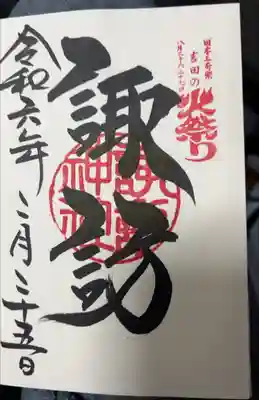 日本三奇祭
吉田の
火祭り
八月二十六・二十七日
諏訪
諏訪
神社
令和六年
二月二十五日